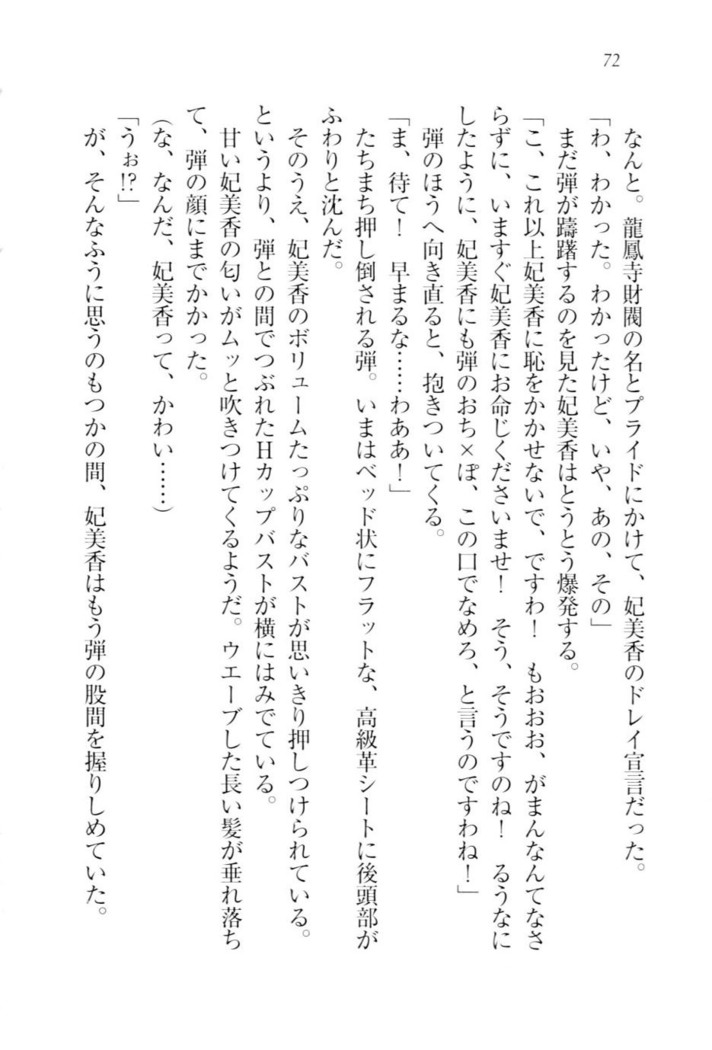 72
なんと。龍鳳寺財閥の名とプライドにかけて、妃美香のドレイ宣言だった。
「わ、わかった。わかったけど、いや、あの、その」
まだ弾が躊躇するのを見た妃美香はとうとう爆発する。
「こ、これ以上妃美香に恥をかかせないで、ですわ！　もおおお、がまんなんてなさ
らずに、いますぐ妃美香にお命じくださいませ！　そう、そうですのね！　るうなに
したように、妃美香にも弾のおち×ぽ、この口でなめろ、と言うのですわね！」
弾のほうへ向き直ると、抱きついてくる。
「ま、待て！　早まるな……わああ！」
たちまち押し倒される弾。いまはベッド状にフラットな、高級革シートに後頭部が
ふわりと沈んだ。
そのうえ、妃美香のボリュームたっぷりなバストが思いきり押しつけられている。
というより、弾との間でつぶれたHカップバストが横にはみでている。
甘い妃美香の匂いがムッと吹きつけてくるようだ。ウエーブした長い髪が垂れ落ち
て、弾の顔にまでかかった。
（な、なんだ、妃美香って、かわい……）
「うぉ!?」
が、そんなふうに思うのもつかの間、妃美香はもう弾の股間を握りしめていた。